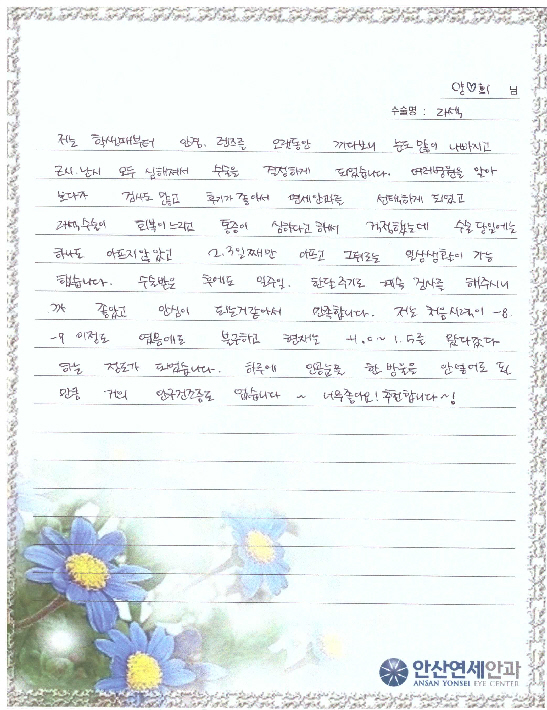 양♡희 님
수술명 : 라섹
저는 학생때부터 안경, 렌즈를 오랫동안 끼다보니 눈도 많이 나빠지고
근시.난시 모두 심해져서 수술을 결정하게 되었습니다. 여러병원을 알아
보다가 검사도 많고 후기가 좋아서 연세안과를 선택하게 되었고
라섹수술이 회복이 느리고 통증이 심하다고 해서 걱정했는데 수술 당일에는
하나도 아프지 않았고 2.3일째만 아프고 그뒤로는 일상생활이 가능
했습니다. 수술받은 후에도 일주일. 한달 주기로 계속 검사를 해주시니
까 좋았고 안심이 되는거 같아서 만족합니다. 저는 처음시력이 -8.
-9 이정도 였음에도 회복하고 현재는 1.0~1.5를 왔다갔다
하는 정도가 되었습니다. 하루에 인공눈물 한 방울을 안넣어도 될
만큼 거의 안구건조증도 없습니다~ 너무좋아요! 추천합니다~!
안산연세안과
ANSAN YONSEI EYE CENTER